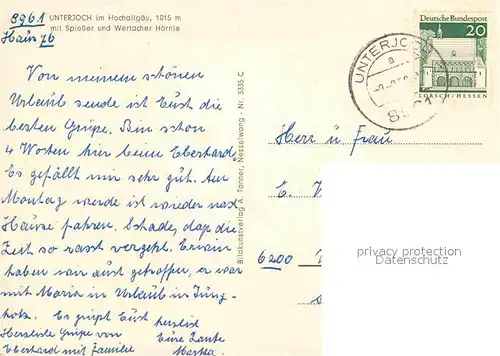 8961
Haus 76
UNTERJOCH im Hochallgäu, 1015 m
mit Spießer und Wertacher Hörnle
Von meinem schönen
Urlaub sende ich Euch die
besten Grüße. Bin schon
4 Wochen hier beim Eberhard.
Es gefällt mir sehr gut. Am
Montag werde ich wieder nach
Hause fahren. Schade, daß die
Zeit so rasch vergeht. Erwin
haben wir auch getroffen, er war
mit Maria in Urlaub in Jung-
holz. Es grüßt Euch herzlich
Herzliche Grüße von Eure Tante
Eberhard mit Familie Martha
Bildkunstverlag A. Tanner, Nesselwang - Nr. 3335 C
Deutsche Bundespost
20
LORSCH/HESSEN
UNTERJOCH
a
8961
Herr u. Frau
E.
6200
privacy protection
Datenschutz